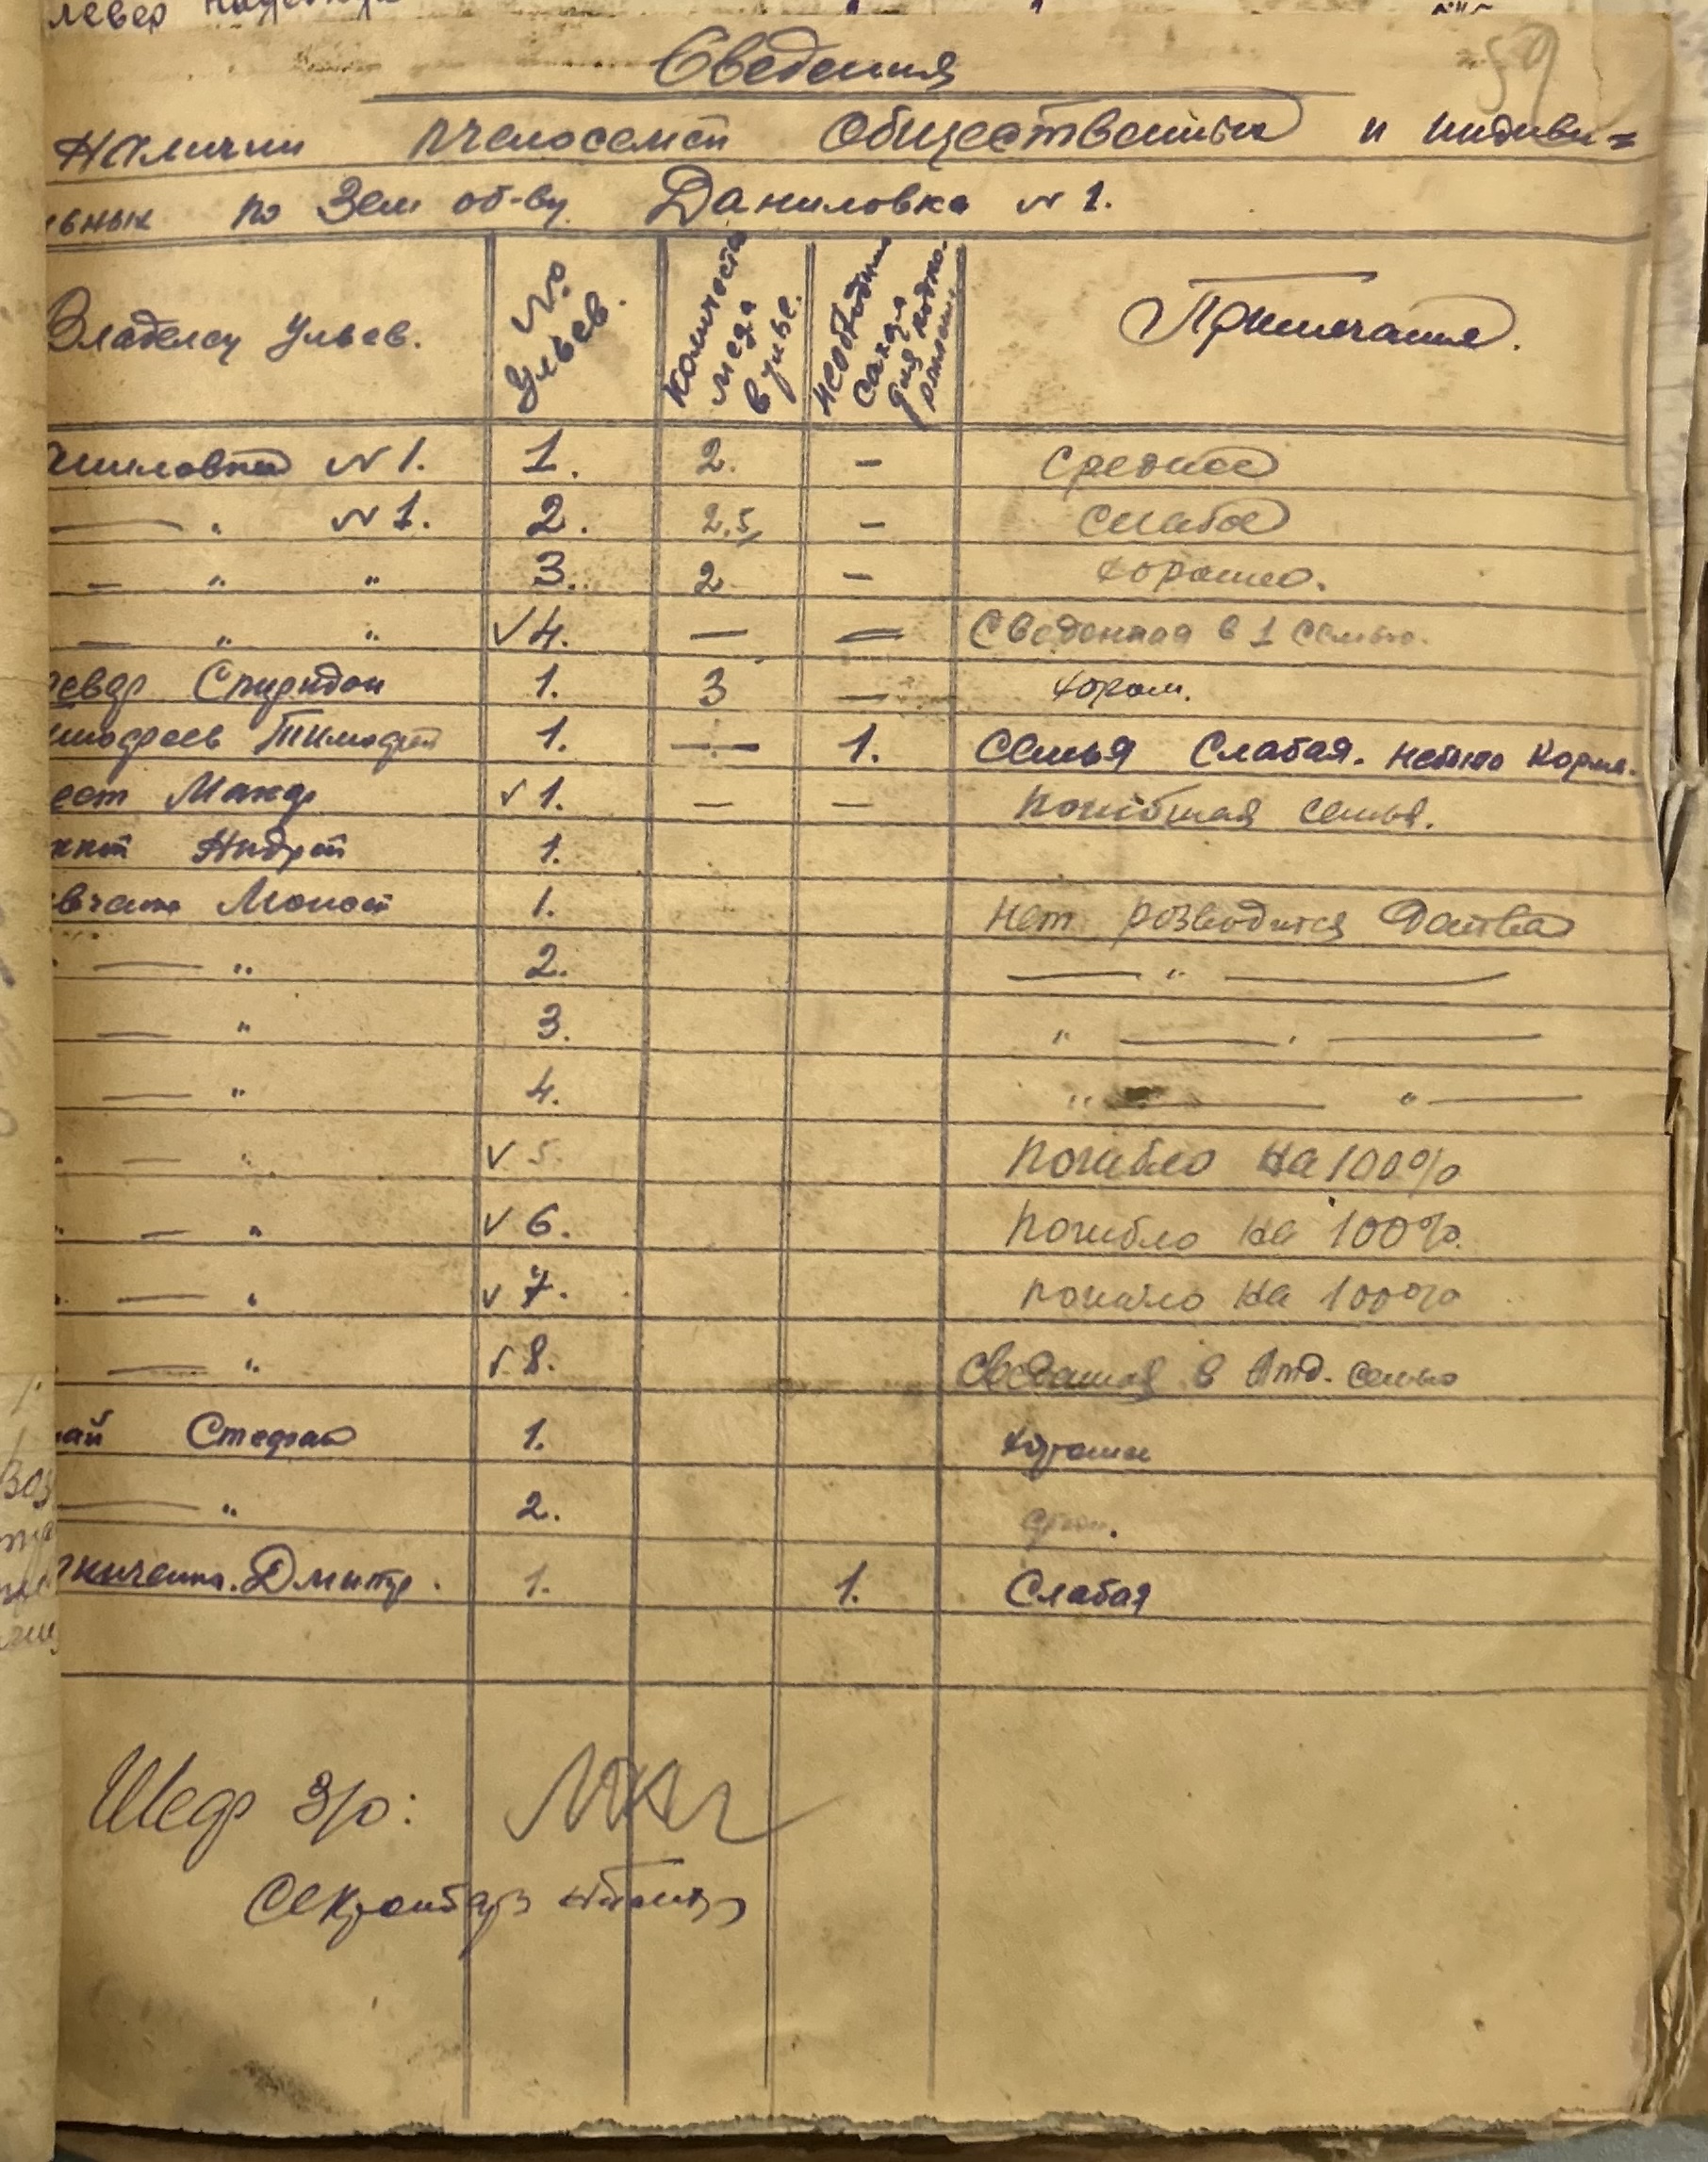 59
Сведения
Наличии пчелосемей Общественных и индиви=
ьных по Зем об-ву Даниловка № 1.
Владелец Ульев.
№ Ульев.
Количество меда в улье.
Необходимо сахара для подкормления.
Примечание.
аниловка № 1. 1. 2. – Среднее
— „ № 1. 2. 2.5 – Слабое
— „ „ 3. 2 – хорошо.
— „ „ ✓ 4. — = Сведенная в 1 семью.
Спиридон 1. 3 — хорош.
имофеев Тимофей 1. — 1. Семья Слабая. Корм.
Макар ✓ 1. – – Погибшая семья.
Андрей 1.
1. Нет розводится Детва
— „ 2. — „ —
— „ 3. „ — „ —
— „ 4. „ — „ —
— „ ✓ 5. Погибло на 100%
— „ ✓ 6. Погибло на 100%.
— „ ✓ 7. погибло на 100%
— „ ✓ 8. Сведенная в Отд. семью
ай Стефан 1. хороши
— „ 2.
Дмитр. 1. 1. Слабая
Шеф З/о:
Секретарь